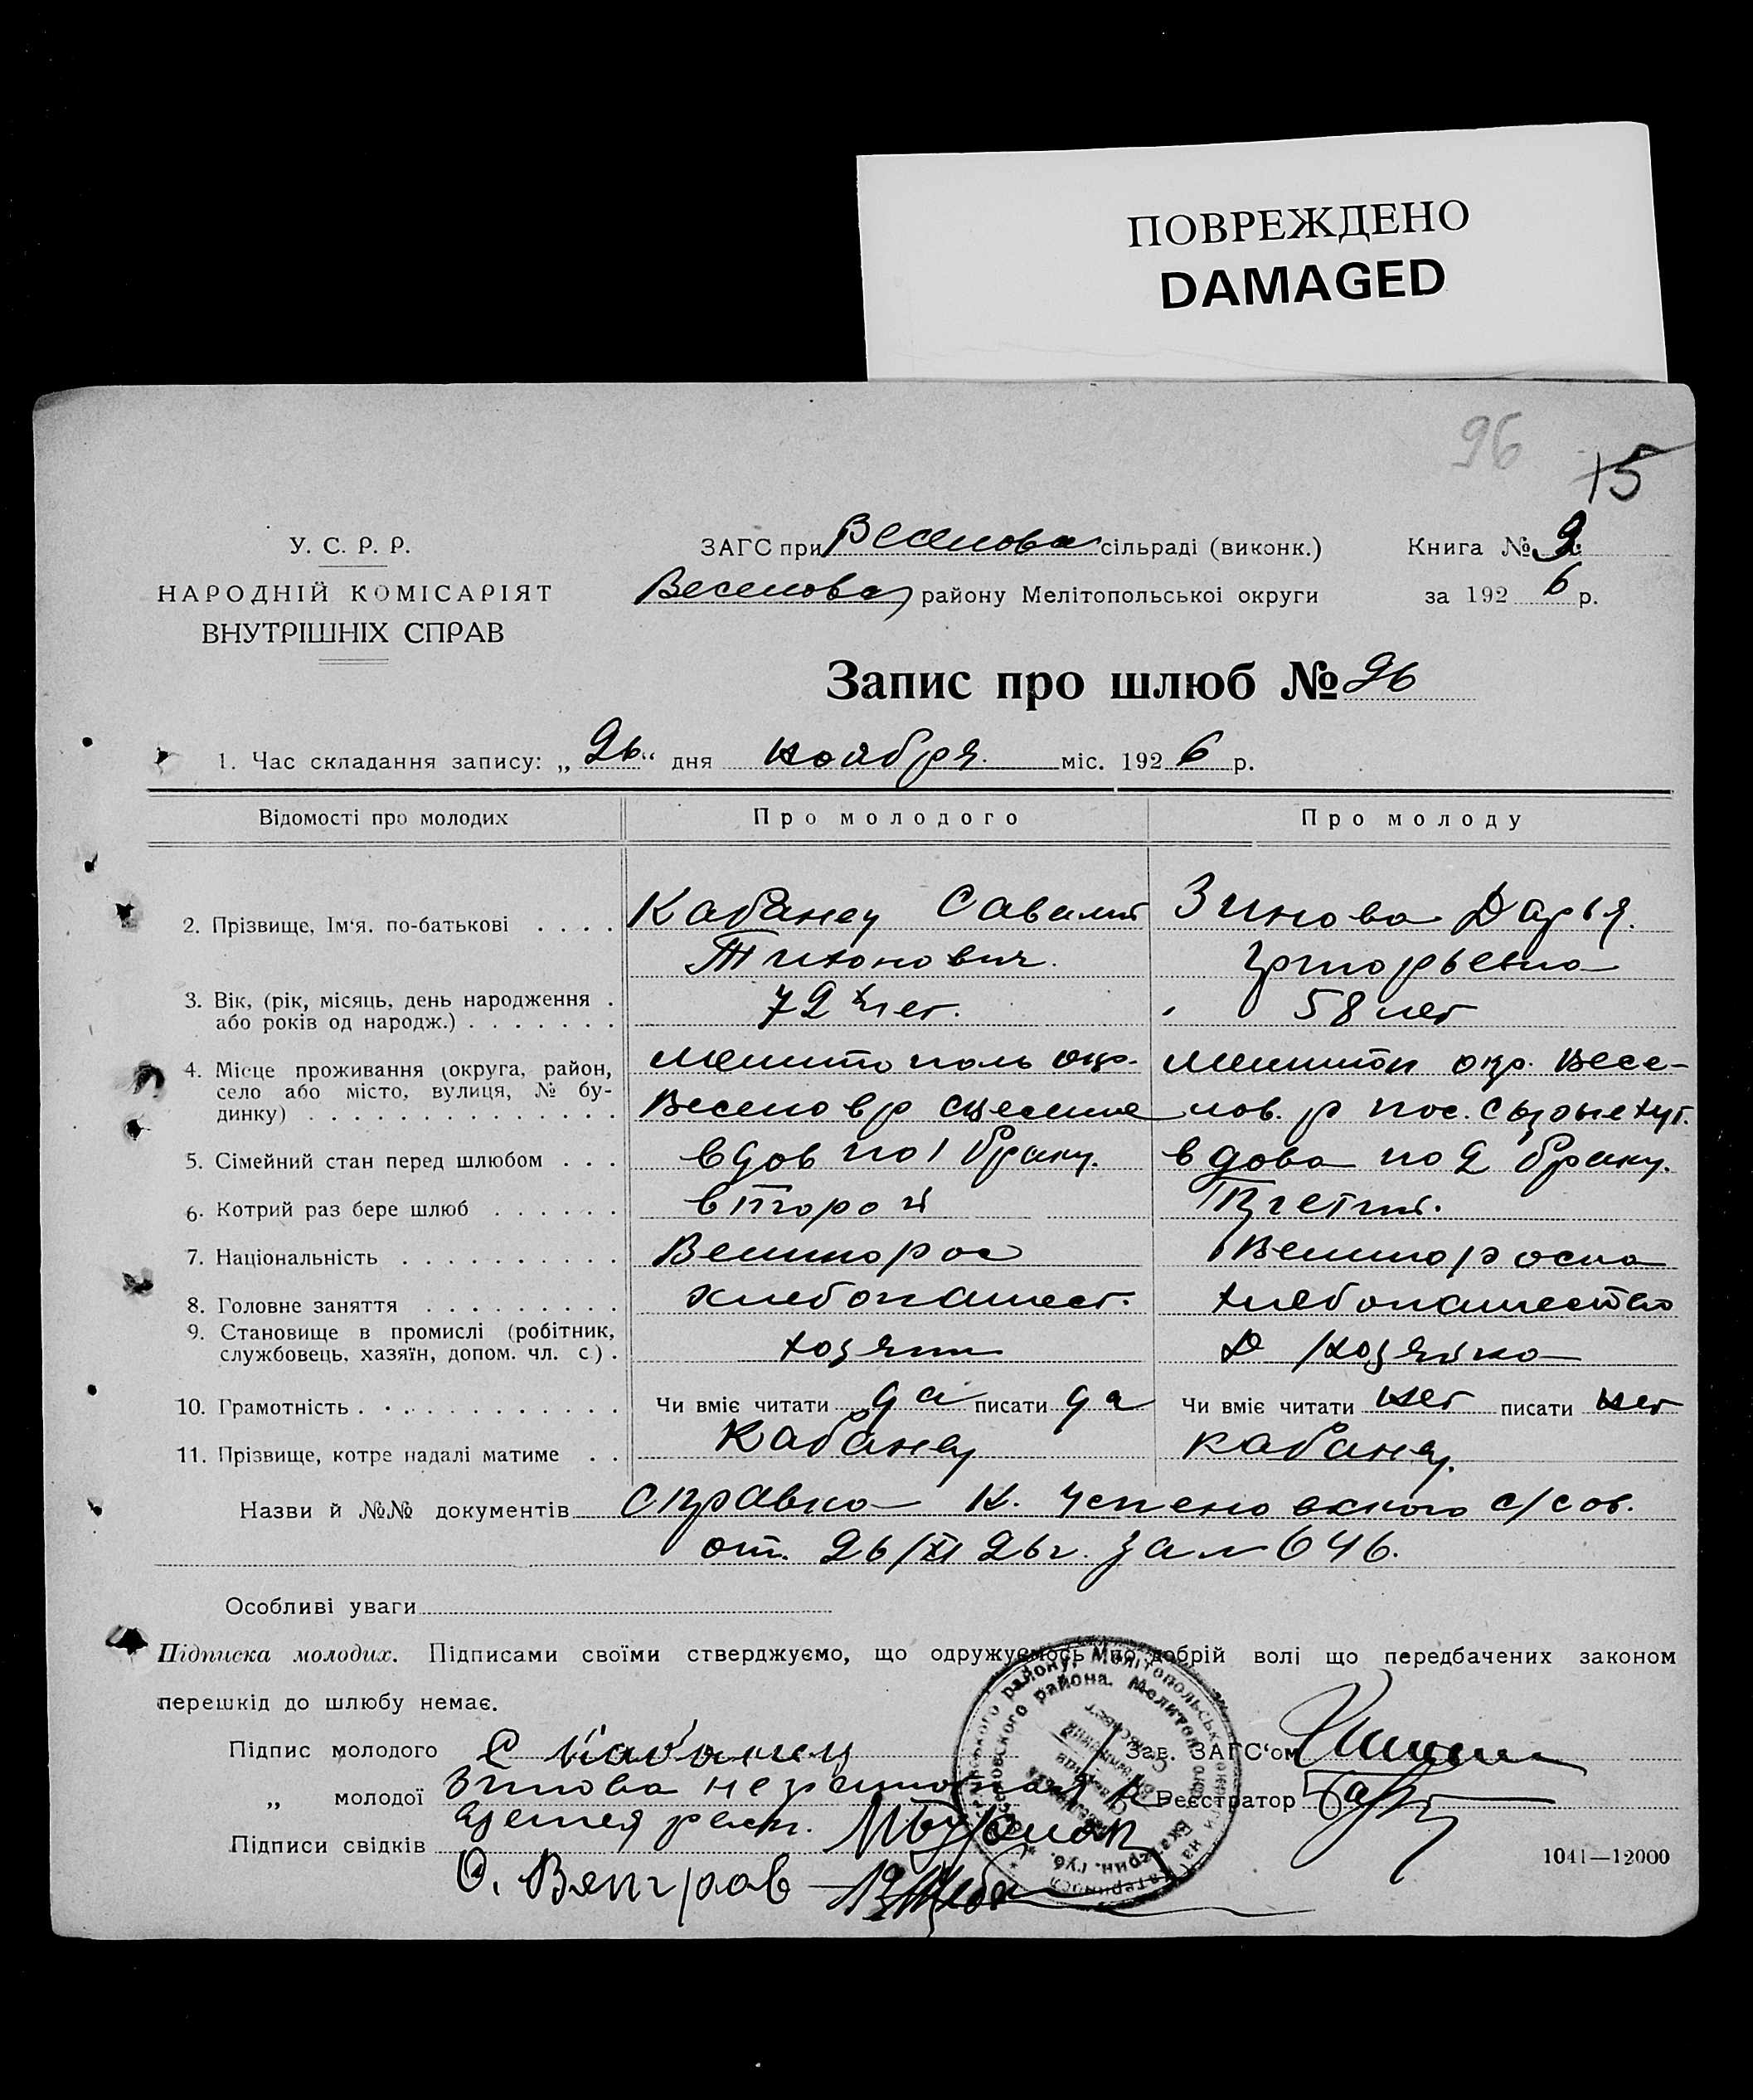 ПОВРЕЖДЕНО
DAMAGED
96
15
У. С. Р. Р.
НАРОДНІЙ КОМІСАРІЯТ
ВНУТРІШНІХ СПРАВ
ЗАГС при Веселова сільраді (виконк.)
Веселова району Мелітопольськоі округи
Книга № 2
за 192 6 р.
Запис про шлюб № 96
1. Час складання запису: „ 26 “ дня ноября. міс. 192 6 р.
Відомості про молодих Про молодого Про молоду
2. Прізвище, Ім‘я. по-батькові . . . . Кабанец Савелий Зинова Дарья.
Тихонович. Григорьевна
3. Вік, (рік, місяць, день народження . 72 лет. 58 лет
або років од народж.) . . . . . . .
4. Місце проживання (округа, район, Мелитополь окр. Мелитоп окр. Весе-
село або місто, вулиця, № бу- Веселов р лов. р пос.
динку) . . . . . . . . . . . . . .
5. Сімейний стан перед шлюбом . . . вдов по 1 браку. вдова по 2 браку.
6. Котрий раз бере шлюб . . . . . . второй Третий.
7. Національність . . . . . . . . . . Великорос Великороска
8. Головне заняття . . . . . . . . . хлебопашест. хлебопашество
9. Становище в промислі (робітник, хозяин хозяйка
службовець, хазяїн, допом. чл. с.) .
10. Грамотність . . . . . . . . . . . . Чи вміє читати да писати да Чи вміє читати нет писати нет
11. Прізвище, котре надалі матиме . . Кабанец Кабанец.
Назви й №№ документів Справка К. Успеновского с/сов.
от. 26/XI 26г. за № 646.
Особливі уваги
Підписка молодих. Підписами своїми стверджуємо, що одружуємось по добрій волі що передбачених законом
перешкід до шлюбу немає.
Підпис молодого С Кабанец Зав. ЗАГС‘ом
„ молодої Зинова неграмотная Реєстратор
Підписи свідків
О. Венгров
1041—12000